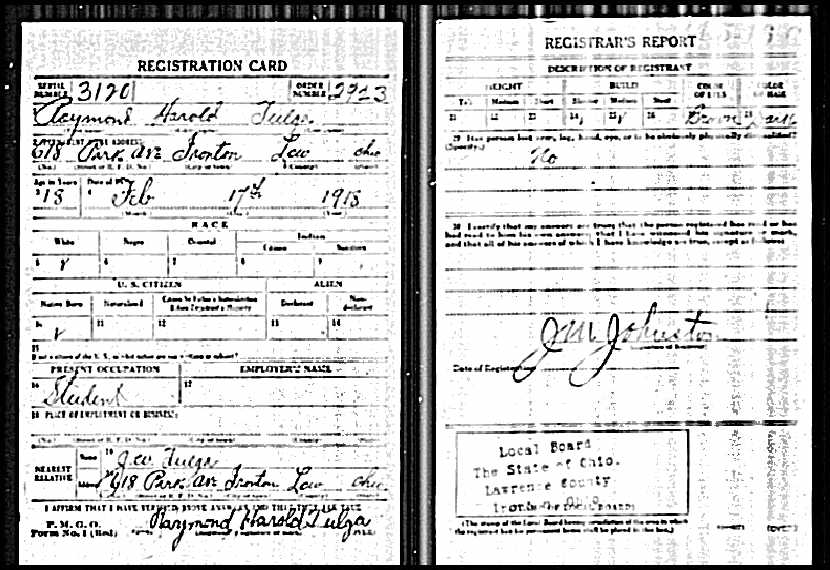 REGISTRATION CARD
SERIAL NUMBER 3120 ORDER NUMBER
Raymond Harold Fulga
618 Park Ave Ironton Law Ohio
(No.) (City or town) (County)
Age in Years Date of Birth
18 Feb 17th 1918
(Month) (Day) (Year)
RACE
White Negro Oriental Indian
Citizen Noncitizen
5 6 7 8 9
U. S. CITIZEN ALIEN
Native Born Naturalized Citizen by Father's Naturalization Before Registrant's Majority Declarant Non-declarant
10 11 12 13 14
15
If not a citizen of the U. S., of what nation are you a citizen or subject?
PRESENT OCCUPATION EMPLOYER'S NAME
16 Student 17
18 PLACE OF EMPLOYMENT OR BUSINESS:
(No.) (Street or R. F. D. No.) (City or town) (County)
NEAREST RELATIVE
Name 19 J.W. Fulga
Address 618 Park Ave Ironton Law Ohio
I AFFIRM THAT I HAVE VERIFIED ABOVE ANSWERS AND THAT THEY ARE TRUE
P. M. G. O.
Form No. 1 (Red) Raymond Harold Fulga
REGISTRAR'S REPORT
DESCRIPTION OF REGISTRANT
HEIGHT BUILD COLOR OF EYES COLOR OF HAIR
Tall Medium Short Slender Medium Stout
21 22 23 24 25 26 Brown Dark
29 Has person lost arm, leg, hand, eye, or is he obviously physically disqualified?
(Specify.) No
30 I certify that my answers are true; that the person registered has read or has
had read to him his own answers; that I have witnessed his signature or mark,
and that all of his answers of which I have knowledge are true, except as follows:
J M Johnston
Date of Registration
Local Board
The State of Ohio.
Lawrence County
Ironton Ohio
(The stamp of the Local Board having jurisdiction of the area in which
the registrant has his permanent home shall be placed in this box.)